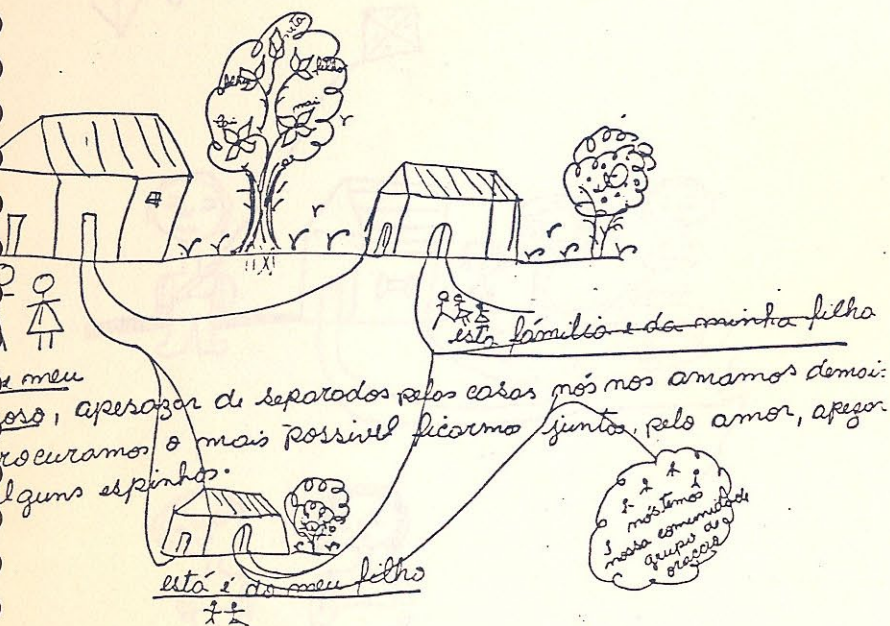 neto
filho
filho
pai
mãe
esta fámilia e da minha filha
e meu
oso, apesazar de separados pelas casas nós nos amamos demai:
rocuramos o mais possivel ficarmo juntos, pelo amor, apezar
lguns espinhos.
nóstemos
nossa comunidade
grupo de
oração
está é do meu filho